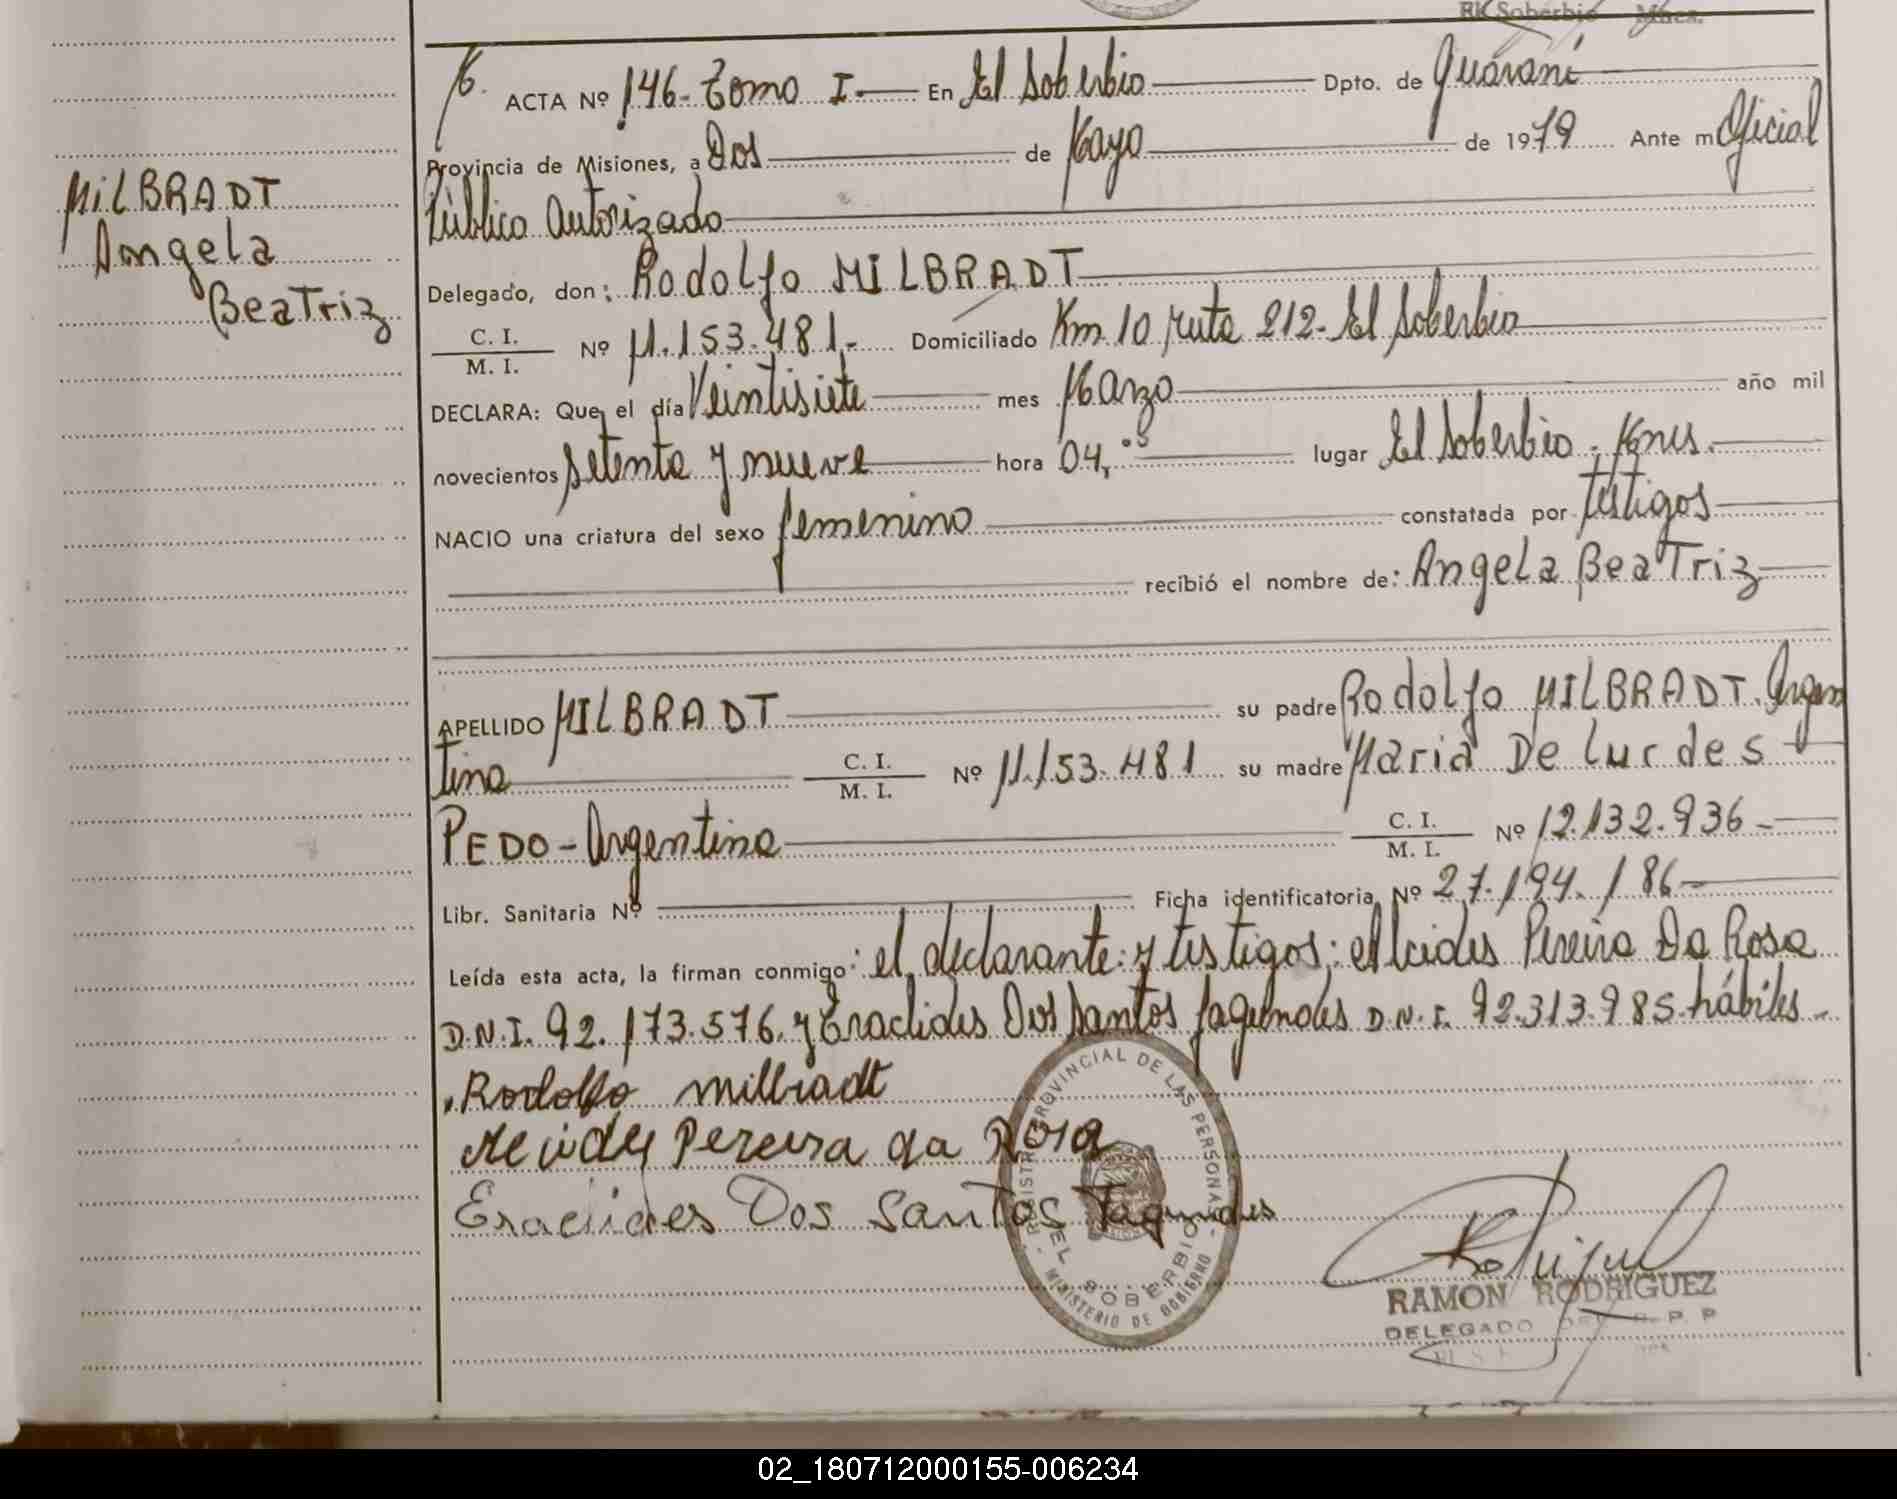 El Soberbio Mnes.
ACTA Nº 146- Tomo I - En El Soberbio Dpto. de Guaraní
Provincia de Misiones, a Dos de Mayo de 1979 Ante mi Oficial
Público Autorizado
Delegado, don: Rodolfo MILBRADT
C. I.
M. I.
Nº 11.153.481.- Domiciliado Km 10 ruta 212- El Soberbio
DECLARA: Que el día Veintisiete mes Marzo año mil
novecientos setenta y nueve hora 04, lugar El Soberbio - Mnes.
NACIO una criatura del sexo femenino constatada por testigos
recibió el nombre de: Angela Beatriz
APELLIDO MILBRADT su padre Rodolfo MILBRADT. Argen
tina C. I.
M. I.
Nº 11.153.481 su madre Maria De Lurdes
PEDO - Argentina C. I.
M. I.
Nº 12.132.936-
Libr. Sanitaria Nº Ficha identificatoria Nº 27.194.186-
Leída esta acta, la firman conmigo: el declarante: y testigos: Alcides Pereira Da Rosa
D.N.I. 92.173.576. y Eraclides Dos Santos Fagundes D.N.I. 92.313.985 hábiles -
Rodolfo Milbradt
Alcides Pereira da Rosa
Eraclides Dos Santos Fagundes
MILBRADT
Angela
Beatriz
REGISTRO PROVINCIAL DE LAS PERSONAS
EL SOBERBIO
MINISTERIO DE GOBIERNO
RAMON RODRIGUEZ
DELEGADO DEL R. P. P
02_180712000155-006234